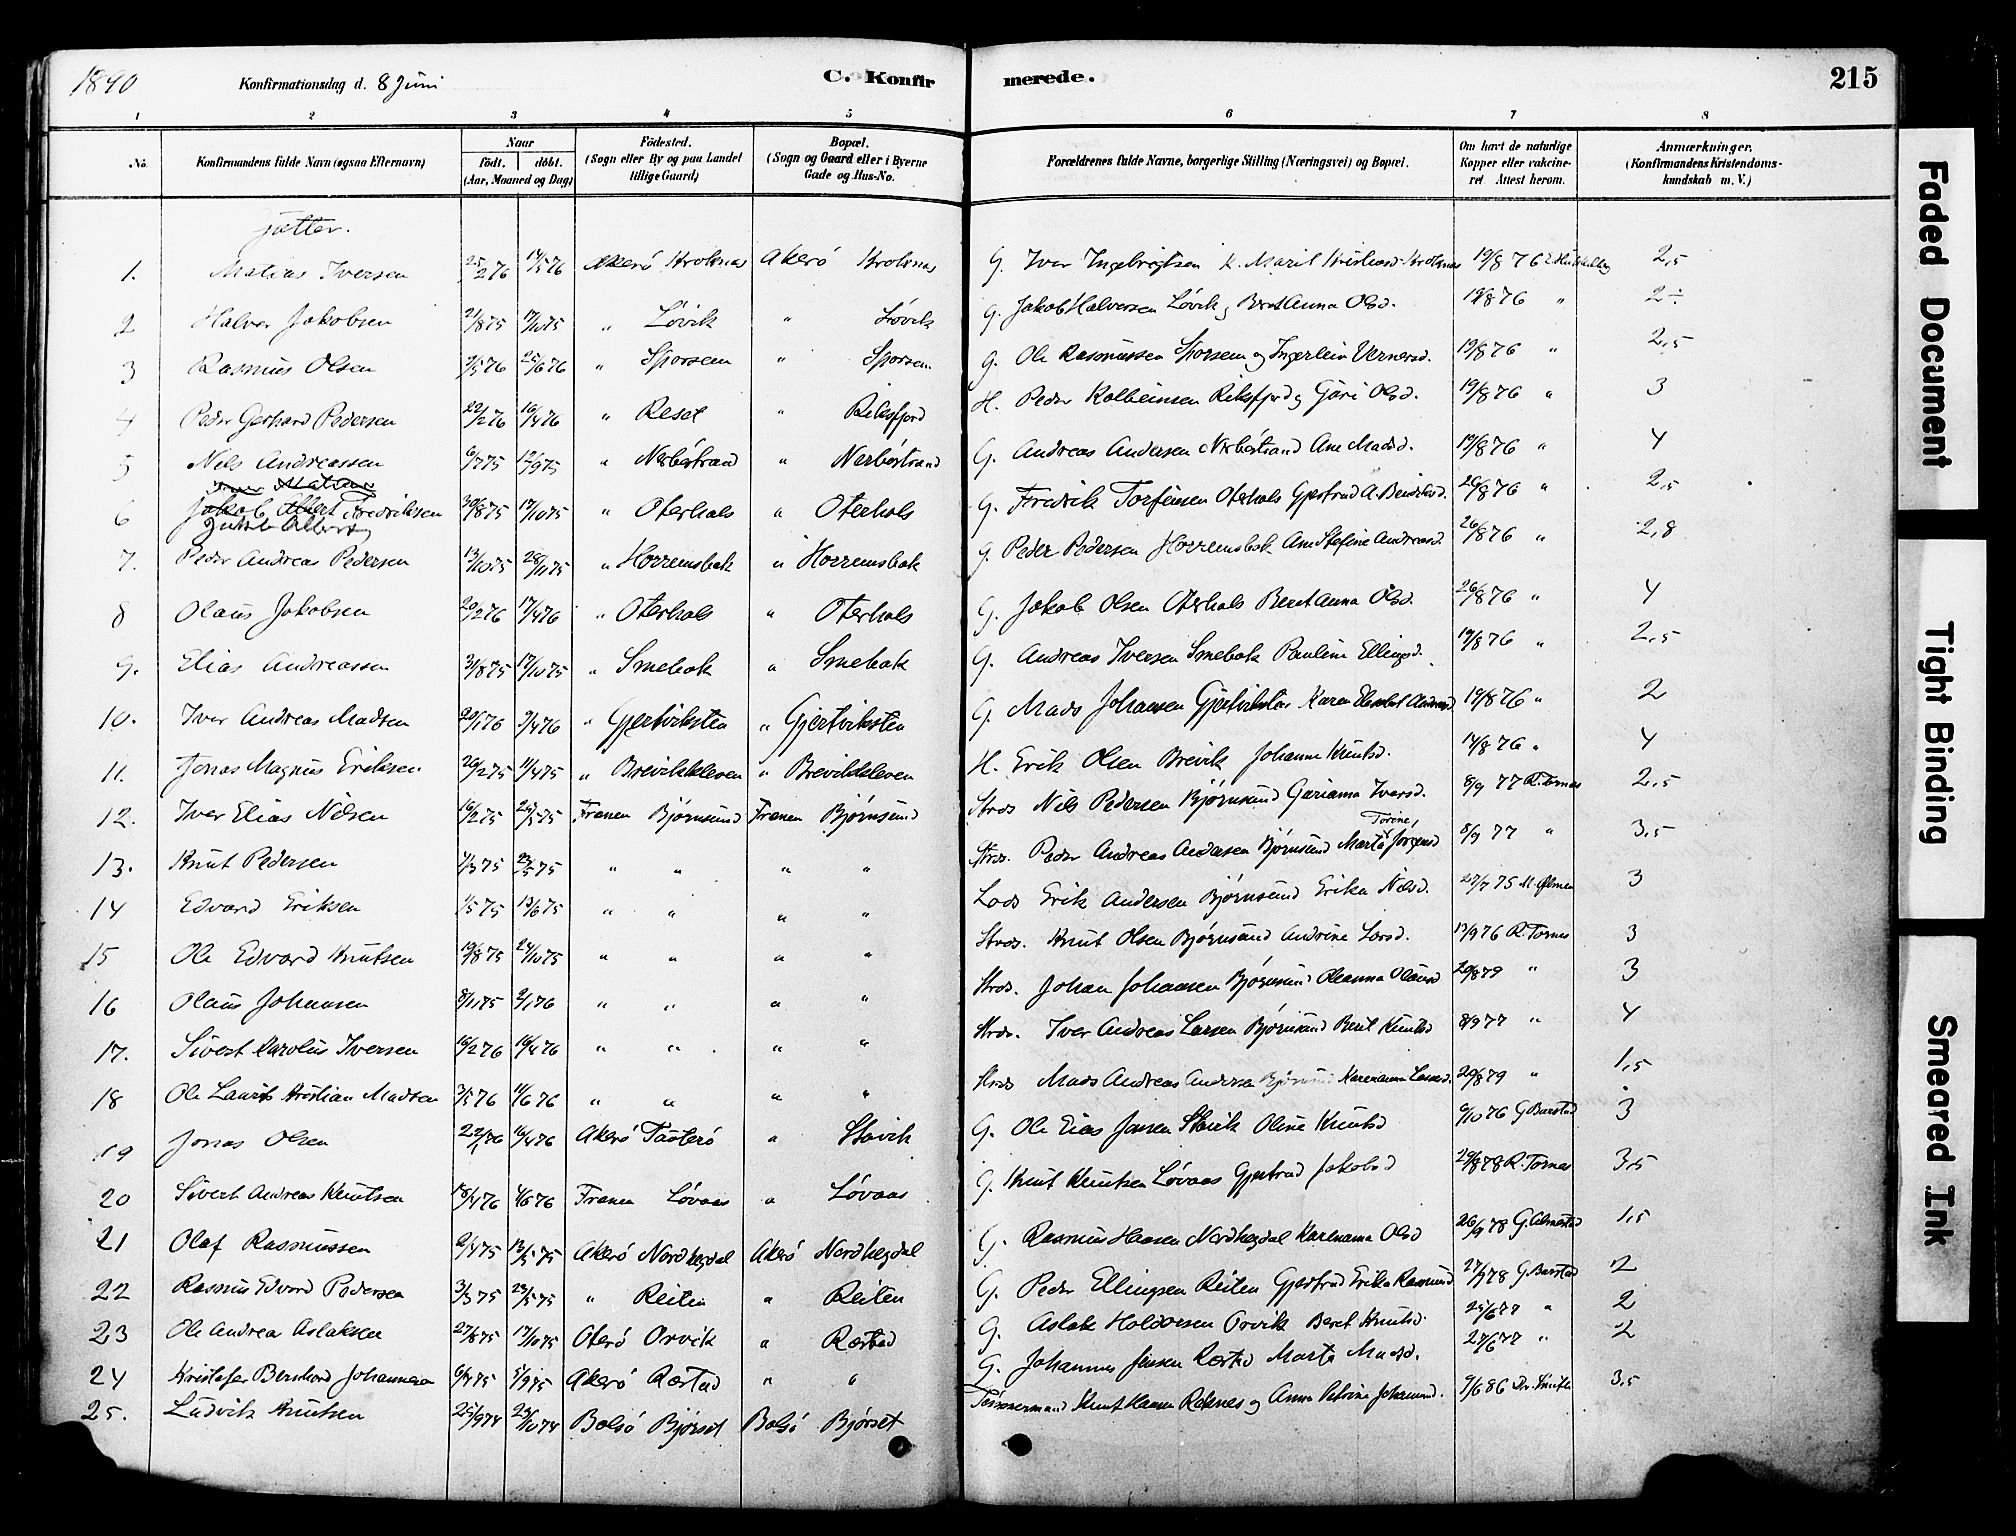 1890 Konfirmationsdag d. 8 Juni C. Konfirmerede. 215
1 2 3 4 5 6 7 8
No. Konfirmandens fulde Navn (ogsaa Efternavn) Naar født. døbt. (Aar, Maaned og Dag) Fødested. (Sogn eller By og paa Landet tillige Gaard) Bopæl. (Sogn og Gaard eller i Byerne Gade og Hus-No. Forældrenes fulde Navne, borgerlige Stilling (Næringsvei) og Bopæl. Om havt de naturlige Kopper eller vakcineret. Attest herom. Anmærkninger. (Konfirmandens Kristendomskundskab m. V.)
Gutter.
1. Matias Iversen 25/2 76 17/5 76 Akerö Kroknes Akerö Kroknes G. Iver Ingebrigtsen K. Marit Kristiansd. Kroknes 19/8 76 2,5
2 Halvor Jakobsen 21/8 75 17/10 75 " Løvik " Løvik G. Jakob Halvorsen Løvik og Beret Anna Olsd. 19/8 76 " 2÷
3 Rasmus Olsen 2/5 76 25/6 76 " Sporsem " Sporsem G. Ole Rasmussen Sporsem og Ingerlein Vernersd. 19/8 76 " 2,5
4 Peder Gerhard Pedersen 22/2 76 16/4 76 " Reset " Riksfjord H. Peder Kolbeinsen Riksfjord og Guri Olsd. 19/8 76 " 3
5 Nils Andreassen 6/7 75 12/9 75 " Nerbøstrand " Nerbøstrand G. Andreas Andersen Nerbøstrand Ane Madsd. 19/8 76 " 4
6 Jakob Albert Fredriksen 30/8 75 17/10 75 " Oterhals " Oterhals G. Fredrik Torfinsen Oterhals Gjertrud A. Bendiksd. 26/8 76 " 2,5
7. Peder Andreas Pedersen 13/10 75 28/11 75 " Horremsbak " Horremsbak G. Peder Pedersen Horremsbak Ane Stefine Andreasd. 26/8 76 " 2,8
8 Olaus Jakobsen 20/2 76 17/4 76 " Oterhals " Oterhals G. Jakob Olsen Oterhals Beret Anna Olsd. 26/8 76 " 4
9. Elias Andreassen 31/8 75 17/10 75 " Smebak " Smebak G. Andreas Iversen Smebak Pauline Ellingsd. 19/8 76 " 2,5
10. Iver Andreas Madsen 20/1 76 9/4 76 " Gjertviksten " Gjertviksten G. Mads Johansen Gjertviksten Karen Elisabet Andersd. 19/8 76 " 2
11. Jonas Magnus Eriksen 20/2 75 11/4 75 " Brevikkleven " Brevikkleven H. Erik Olsen Brevik Johanne Knutsd. 14/8 76 " 4
12. Iver Elias Nilsen 16/2 75 Frænen Bjørnsund Frænen Bjørnsund Strds Nils Pedersen Bjørnsund Gurianna Iversd. 8/9 77 R. Tornes 2,5
13. Knut Pedersen 4/3 75 23/5 75 " " " " Strds. Peder Andreas Andersen Bjørnsund Marta Torine Jørgensd 8/9 77 " 3,5
14 Edvard Eriksen 1/5 75 13/6 75 " " " " Lods Erik Andersen Bjørnsund Erika Nilsd. 27/7 75 3
15 Ole Edvard Knutsen 19/8 75 24/10 75 " " " " Strds. Knut Olsen Bjørnsund Andrine Larsd. 13/9 76 R. Tornes 3
16 Olaus Johansen 8/11 75 2/1 76 " " " " Strds. Johan Johansen Bjørnsund Oleanna Olausd 20/8 79 " 3
17. Sivert Karolus Iversen 16/2 76 16/4 76 " " " " Strds. Iver Andreas Larsen Bjørnsund Berit Knutsd 8/9 77 " 4
18 Ole Laurits Kristian Madsen 3/5 76 11/6 76 " " " " Strds Mads Andreas Andersen Bjørnsund Karenanna Larsd. 20/8 79 " 1,5
19 Jonas Olsen 22/1 76 16/4 76 Akerö Tautrö " Stavik G. Ole Elias Jonsen Stavik Oline Knutsd 6/10 76 G Burstad 3
20 Sivert Andreas Knutsen 18/4 76 4/6 76 Frænen Løvaas " Løvaas G. Knut Knutsen Løvaas Gjertrud Jakobsd 29/8 78 R. Tornes 3,5
21 Olaf Rasmussen 2/4 75 Akerö Nordhegdal Akerö Nordhegdal G. Rasmus Hansen Nordhegdal Karenanna Olsd 26/9 78 1,5
22 Rasmus Edvard Pedersen 3/3 75 29/5 75 " Reiten " Reiten G. Peder Ellingsen Reiten Gjertrud Erika Rasmusd 27/7 78 G. Burstad 2
23 Ole Andrea Aslaksen 27/8 75 17/10 75 Akerö Orvik " Rørstad G. Aslak Holdorsen Orvik Beret Knutsd. 25/6 77 " 2
24 Kristofer Bernhard Johannesen 6/7 75 5/9 75 Akerö Rørstad " " G. Johannes Jensen Rørstad Marta Madsd. 27/6 77 " 2
25. Ludvik Knutsen 25/9 74 Bolsö Bjørset Bolsö Bjørset Tømmermand Knut Hansen Reknes og Anna Petrine Johannesd. 9/6 86 3,5
Faded Document
Tight Binding
Smeared Ink